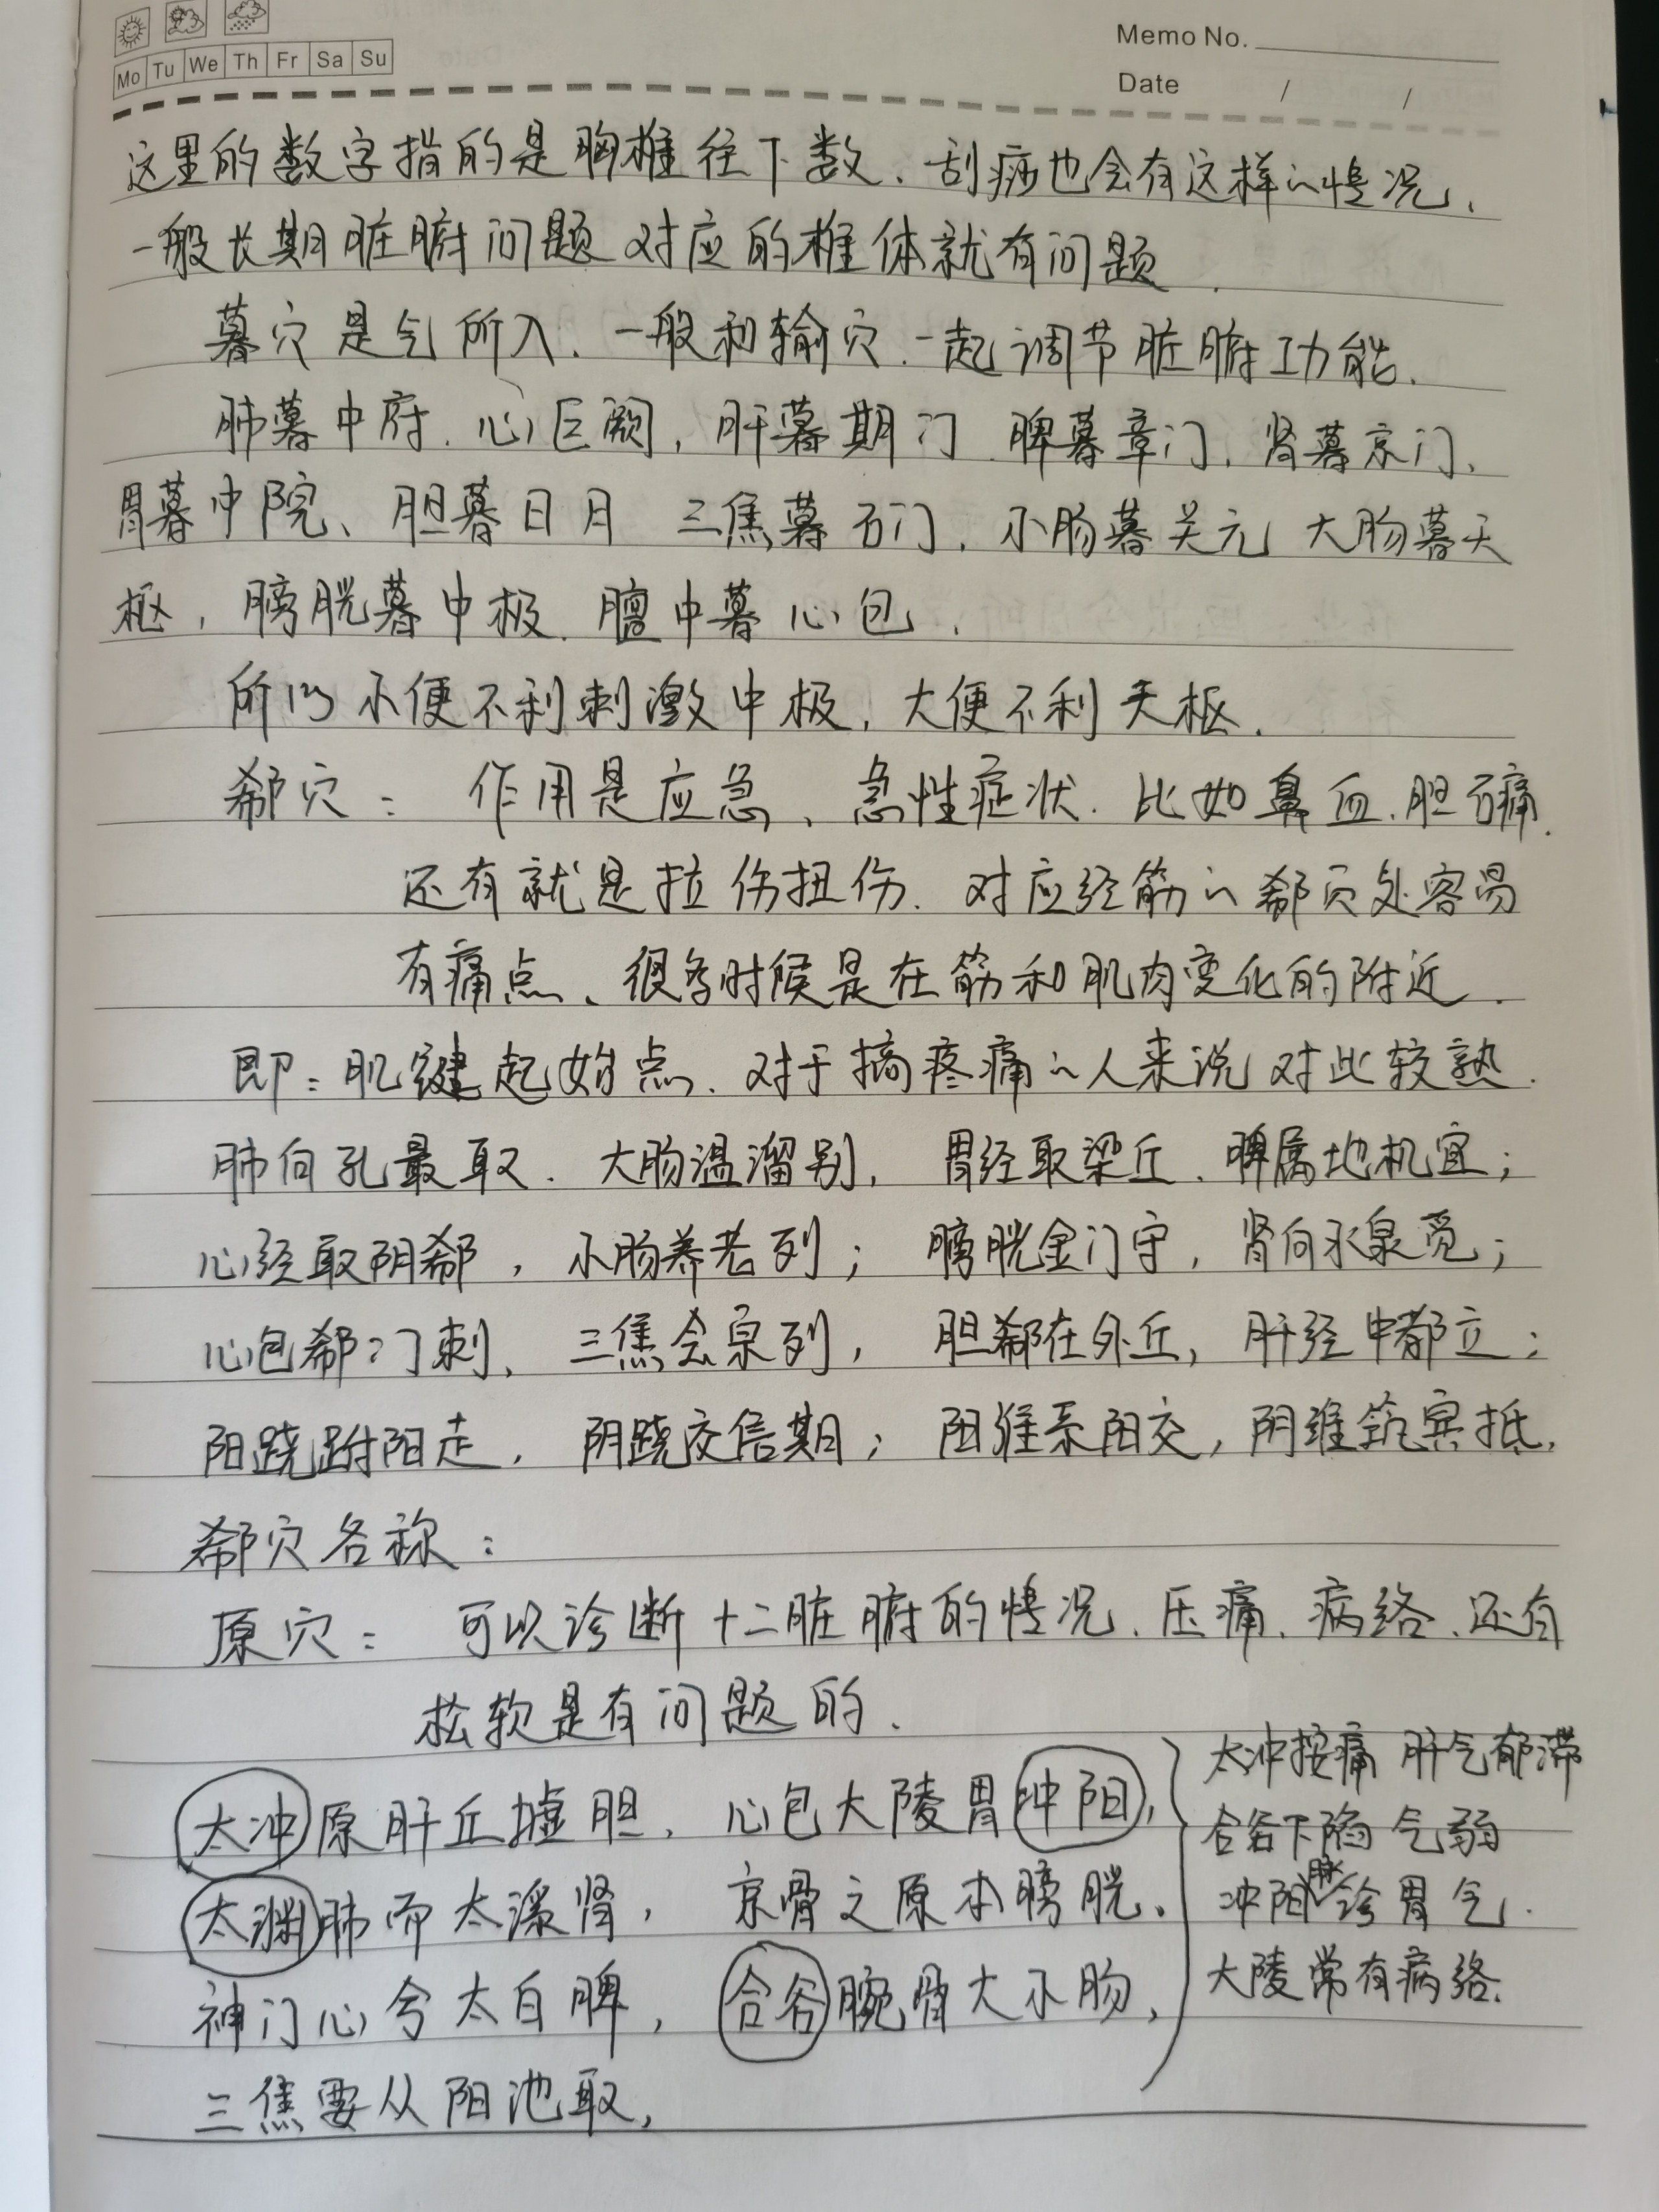 Memo No.
Mo Tu We Th Fr Sa Su
Date / /
这里的数字指的是胸椎往下数、刮痧也会有这样的情况、
一般长期脏腑问题对应的椎体就有问题.
暮穴是气所入.一般和输穴一起调节脏腑功能.
肺暮中府.心巨阙,肝暮期门 脾暮章门,肾暮京门、
胃暮中院、胆暮日月 三焦暮石门,小肠暮关元 大肠暮天
枢,膀胱暮中极.膻中暮心包.
所以小便不利刺激中极,大便不利天枢.
郄穴:作用是应急、急性症状.比如鼻血.胆石痛.
还有就是拉伤扭伤.对应经筋的郄穴处容易
有痛点、很多时候是在筋和肌肉变化的附近.
即:肌键起始点.对于搞疼痛的人来说对此较熟.
肺向孔最取.大肠温溜别,胃经取梁丘.脾属地机宜;
心经取阴郄,小肠养老列;膀胱金门守,肾向水泉觅;
心包郄门刺,三焦会宗列,胆郄在外丘,肝经中都立;
阳跷跗阳走,阴跷交信期;阳维系阳交,阴维筑宾抵.
郄穴名称:
原穴:可以诊断十二脏腑的情况.压痛.病络.还有
松软是有问题的.
太冲原肝丘墟胆,心包大陵胃冲阳,
太渊肺而太溪肾,京骨之原本膀胱、
神门心兮太白脾,合谷腕骨大小肠,
三焦要从阳池取,
太冲按痛 肝气郁滞
合谷下陷 气弱
冲阳脉诊胃气.
大陵常有病络.